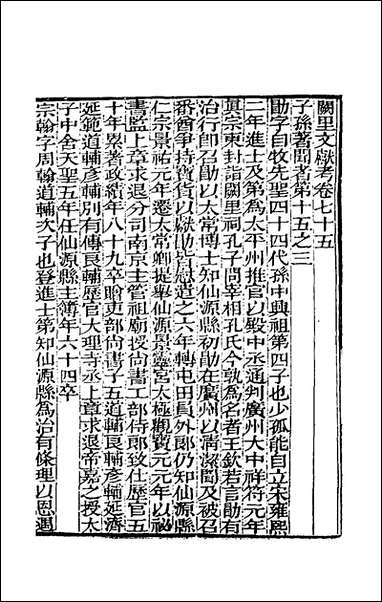 闕里文獻考卷七十五
子孫著聞者第十五之三
勖字自牧先聖四十四代孫中興祖第四子也少孤能自立宋雍熙
二年進士及第為太平州推官以殿中丞通判廣州大中祥符元年
眞宗東封詣闕里祠孔子問宰相孔氏今孰為名者王欽若言勖有
治行卽召勖以太常博士知仙源縣初勖在廣州以淸潔聞及被召
番酋爭持寶貨以獻勖皆慰遣之六年轉屯田員外郞仍知仙源縣
仁宗景祐元年遷太常卿提舉仙源景靈宮太極觀寶元元年以祕
書監上章求退分司南京主管祖廟授尚書工部侍郞致仕歷官五
十年累著政績年八十九卒贈吏部尚書子五道輔良輔彥輔延濟
延範道輔彥輔別有傳良輔歷官大理寺丞上章求退帝嘉之授太
子中舍天聖五年任仙源縣主簿年六十四卒
宗翰字周翰道輔次子也登進士第知仙源縣為治有條理以恩遇